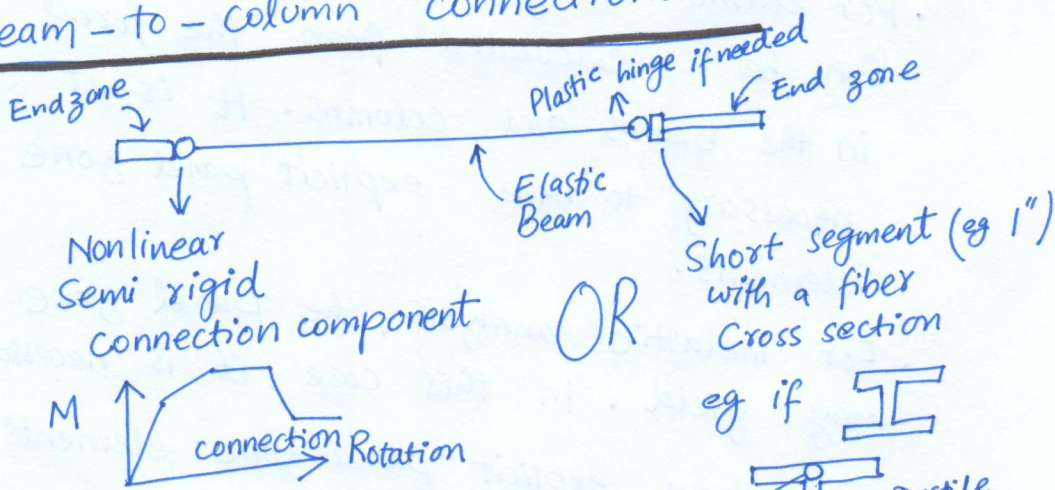 eam - to - column
End zone
Plastic hinge if needed
End zone
Elastic
Beam
Nonlinear
Semi rigid
connection component
OR
Short segment (eg 1")
with a fiber
Cross section
M
connection Rotation
eg if